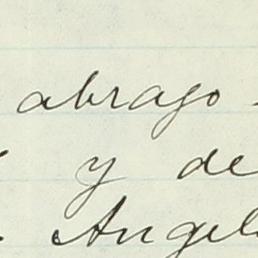 abrazo
y de
Angel